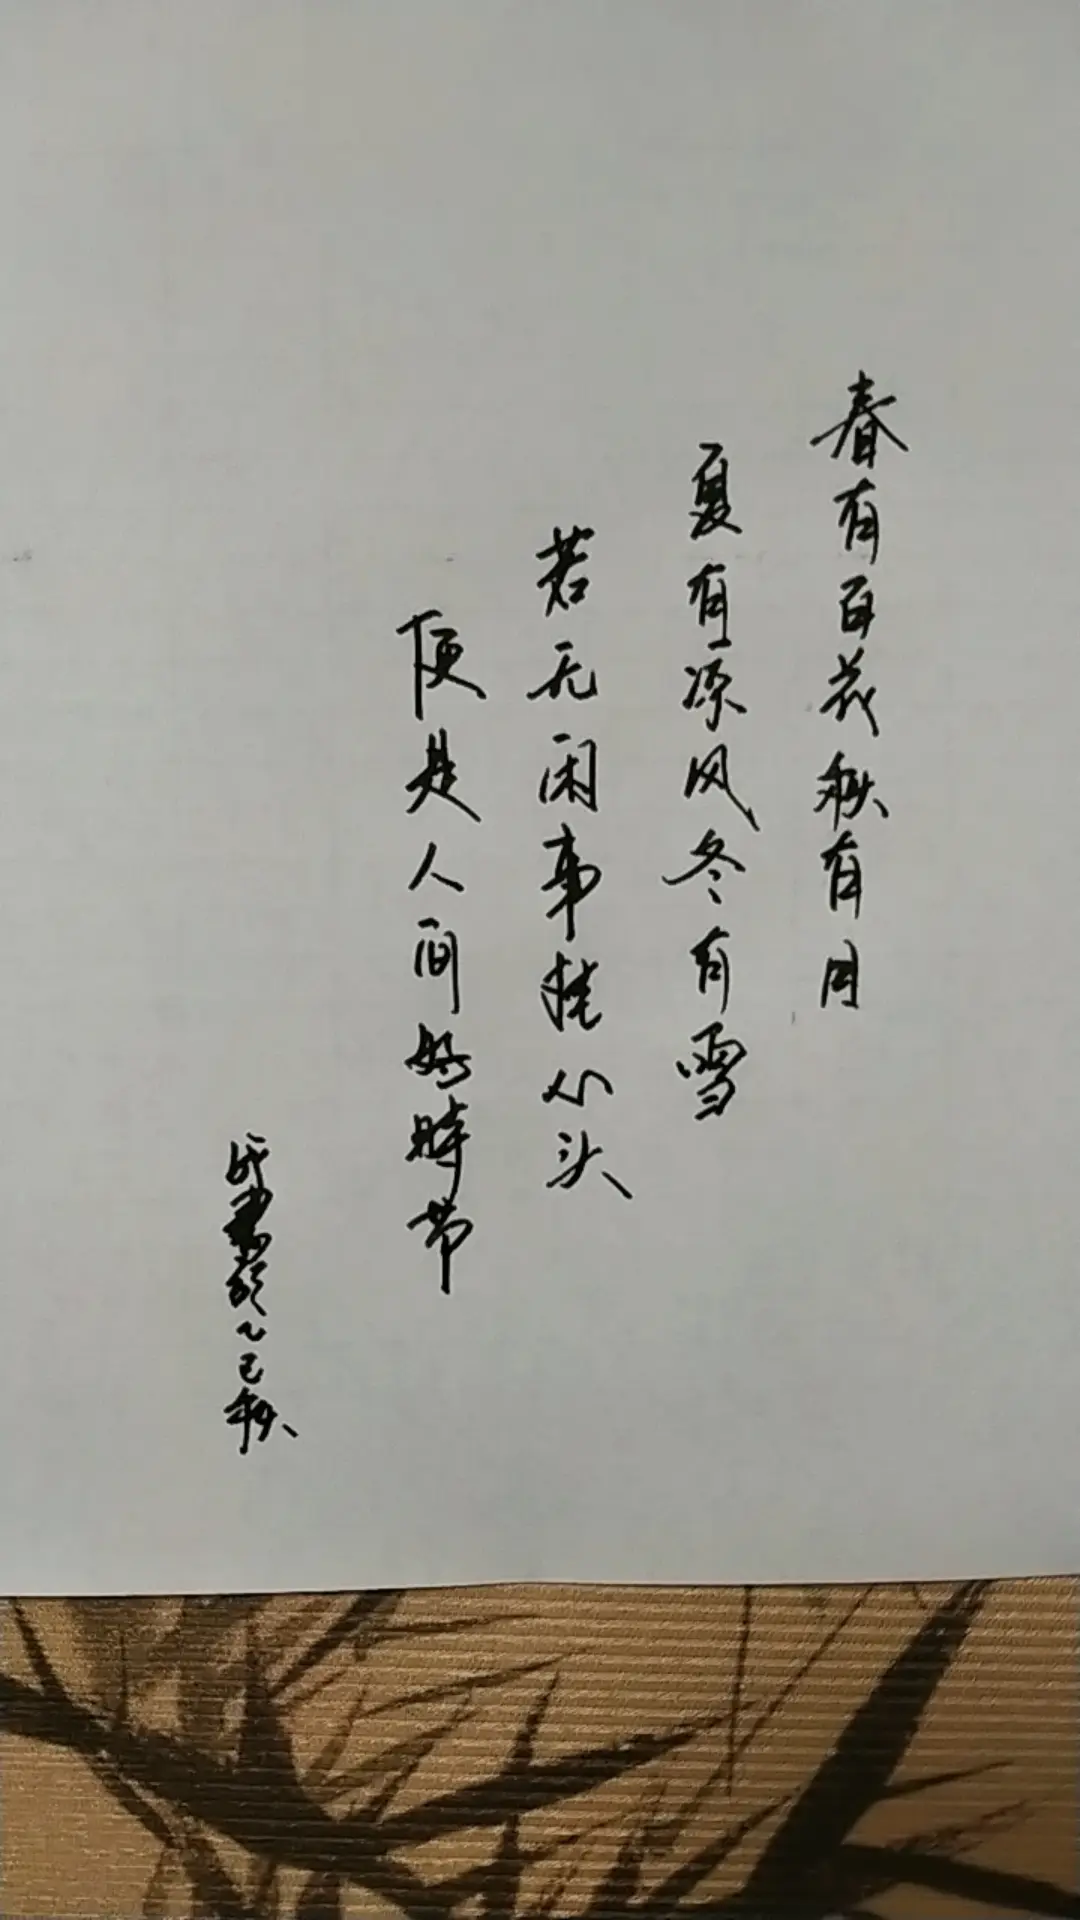 春有百花秋有月
夏有凉风冬有雪
若无闲事挂心头
便是人间好时节
书於乙巳秋